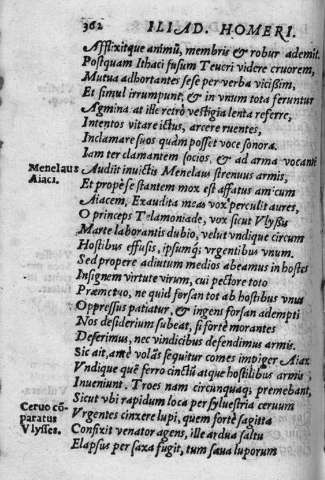 362 ILIAD. HOMERI.
Afflixitque animũ, membris & robur ademit.
Postquam Ithaci fusum Teucri videre cruorem,
Mutua adhortantes sese per verba vicißim,
Et simul irrumpunt, & in vnum tota feruntur
Agmina at ille retrò vestigia lenta referre,
Intentos vitare ictus, arcere ruentes,
Inclamare suos quàm posset voce sonora.
Iam ter clamantem socios, & ad arma vocantẽ
Menelaus Audiit inuictis Menelaus strenuus armis,
Aiaci. Et propè se stantem mox est affatus amicum
Aiacem, Exaudita meas vox perculit aures,
O princeps Telamoniade, vox sicut Vlyßis
Marte laborantis dubio, velut vndique circum
Hostibus effusis, ipsumq; vrgentibus vnum.
Sed propere adiutum medios abeamus in hostes
Insignem virtute virum, cui pectore toto
Præmetuo, ne quid forsan tot ab hostibus vnus
Oppressus patiatur, & ingens forsan adempti
Nos desiderium subeat, si fortè morantes
Deferimus, nec vindicibus defendimus armis.
Sic ait, antè volãs sequitur comes impiger Aiax
Vndique què ferro cinctũ atque hostilibus armis
Inueniunt. Troes nam circunquaq; premebant,
Ceruo cõ- Sicut vbi rapidum loca per syluestria ceruum
paratus Vrgentes cinxere lupi, quem fortè sagitta
Vlysses. Confixit venator agens, ille ardua saltu
Elapsus per saxa fugit, tum sæua luporum